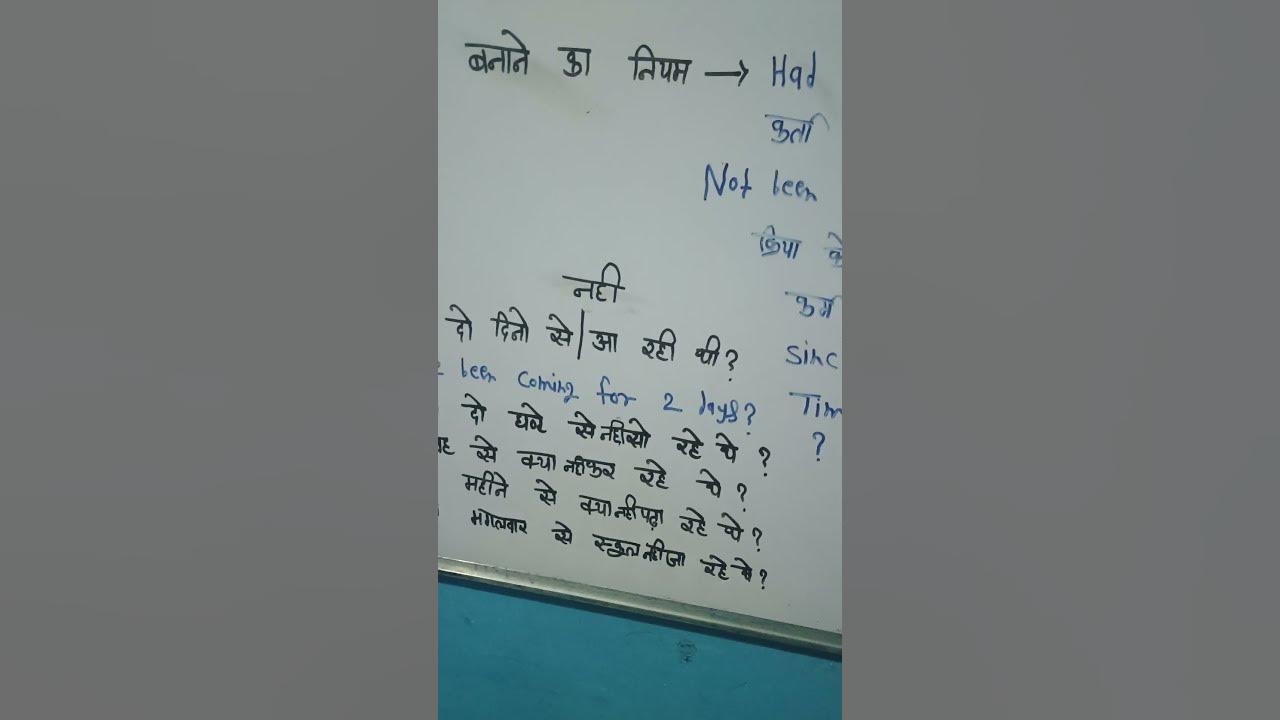 बनाने का नियम → Had
कर्ता
Not been
क्रिया के
कर्म
नही
दो दिनो से | आ रही थी ? Sinc
been coming for 2 days? Tim
दो घण्टे से नही सो रहे थे ? ?
से क्या नही कर रहे थे ?
महीने से क्या नही पढ़ा रहे थे ?
मंगलवार से स्कूल नही जा रहे थे ?